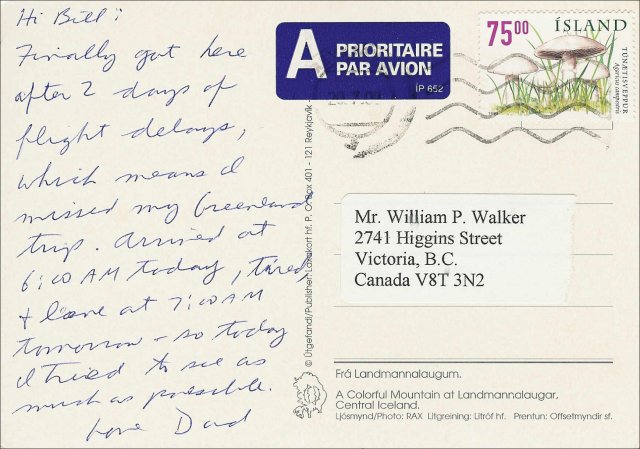 Hi Bill:
Finally got here
after 2 days of
flight delays,
which means I
missed my Greenland
trip. Arrived at
6:00 AM today, tired,
& leave at 7:00 AM
tomorrow - so today
I tried to see as
much as possible.
Love Dad
A PRIORITAIRE
PAR AVION
ÍP 652
75.00 ÍSLAND
TÚNÆTISVEPPUR
Agaricus campestris
Mr. William P. Walker
2741 Higgins Street
Victoria, B.C.
Canada V8T 3N2
© Útgefandi/Publisher: Litbrá hf. P. O. Box 401 - 121 Reykjavík
Frá Landmannalaugum.
A Colorful Mountain at Landmannalaugar,
Central Iceland.
Ljósmynd/Photo: RAX Litgreining: Litróf hf. Prentun: Offsetmyndir sf.